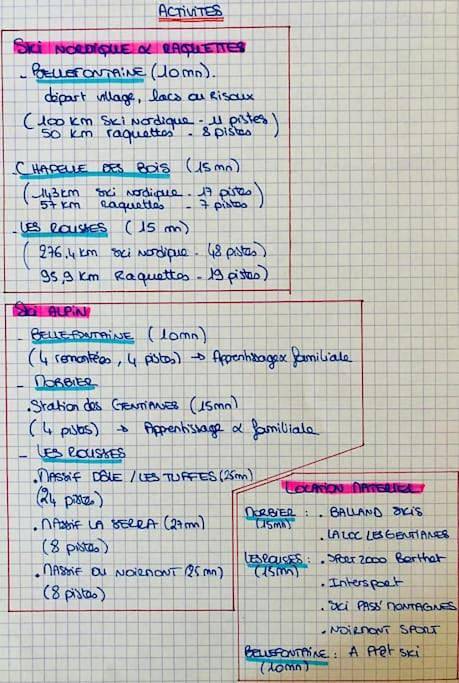 ACTIVITES
SKI NORDIQUE & RAQUETTES
- BELLEFONTAINE (10mn).
départ village, lacs ou Risoux
(100 km Ski Nordique - 11 pistes
50 km raquettes - 8 pistes)
. CHAPELLE DES BOIS (15mn)
(143km Ski nordique - 17 pistes
57 km Raquettes - 7 pistes)
- LES ROUSSES (15 mn)
(276,4 km Ski nordique - (48 pistes)
95,9 km Raquettes - 19 pistes)
SKI ALPIN
- BELLEFONTAINE (10mn)
(4 remontées, 4 pistes) → Apprentissage & familiale
- MORBIER
. Station des GENTIANES (15mn)
(4 pistes) → Apprentissage & familiale
- LES ROUSSES
. MASSIF DÔLE / LES TUFFES (25mn)
(24 pistes)
. MASSIF LA SERRA (27mn)
(8 pistes)
. MASSIF DU NOIRMONT (25mn)
(8 pistes)
LOCATION MATERIEL
MORBIER : . BALLAND SKIS
(15mn) . LALOC LES GENTIANES
LES ROUSSES : . SPORT 2000 Berthet
(15mn) . Intersport
. SKI PASS' MONTAGNES
. NOIRMONT SPORT
BELLEFONTAINE : A Prêt Ski
(10mn)